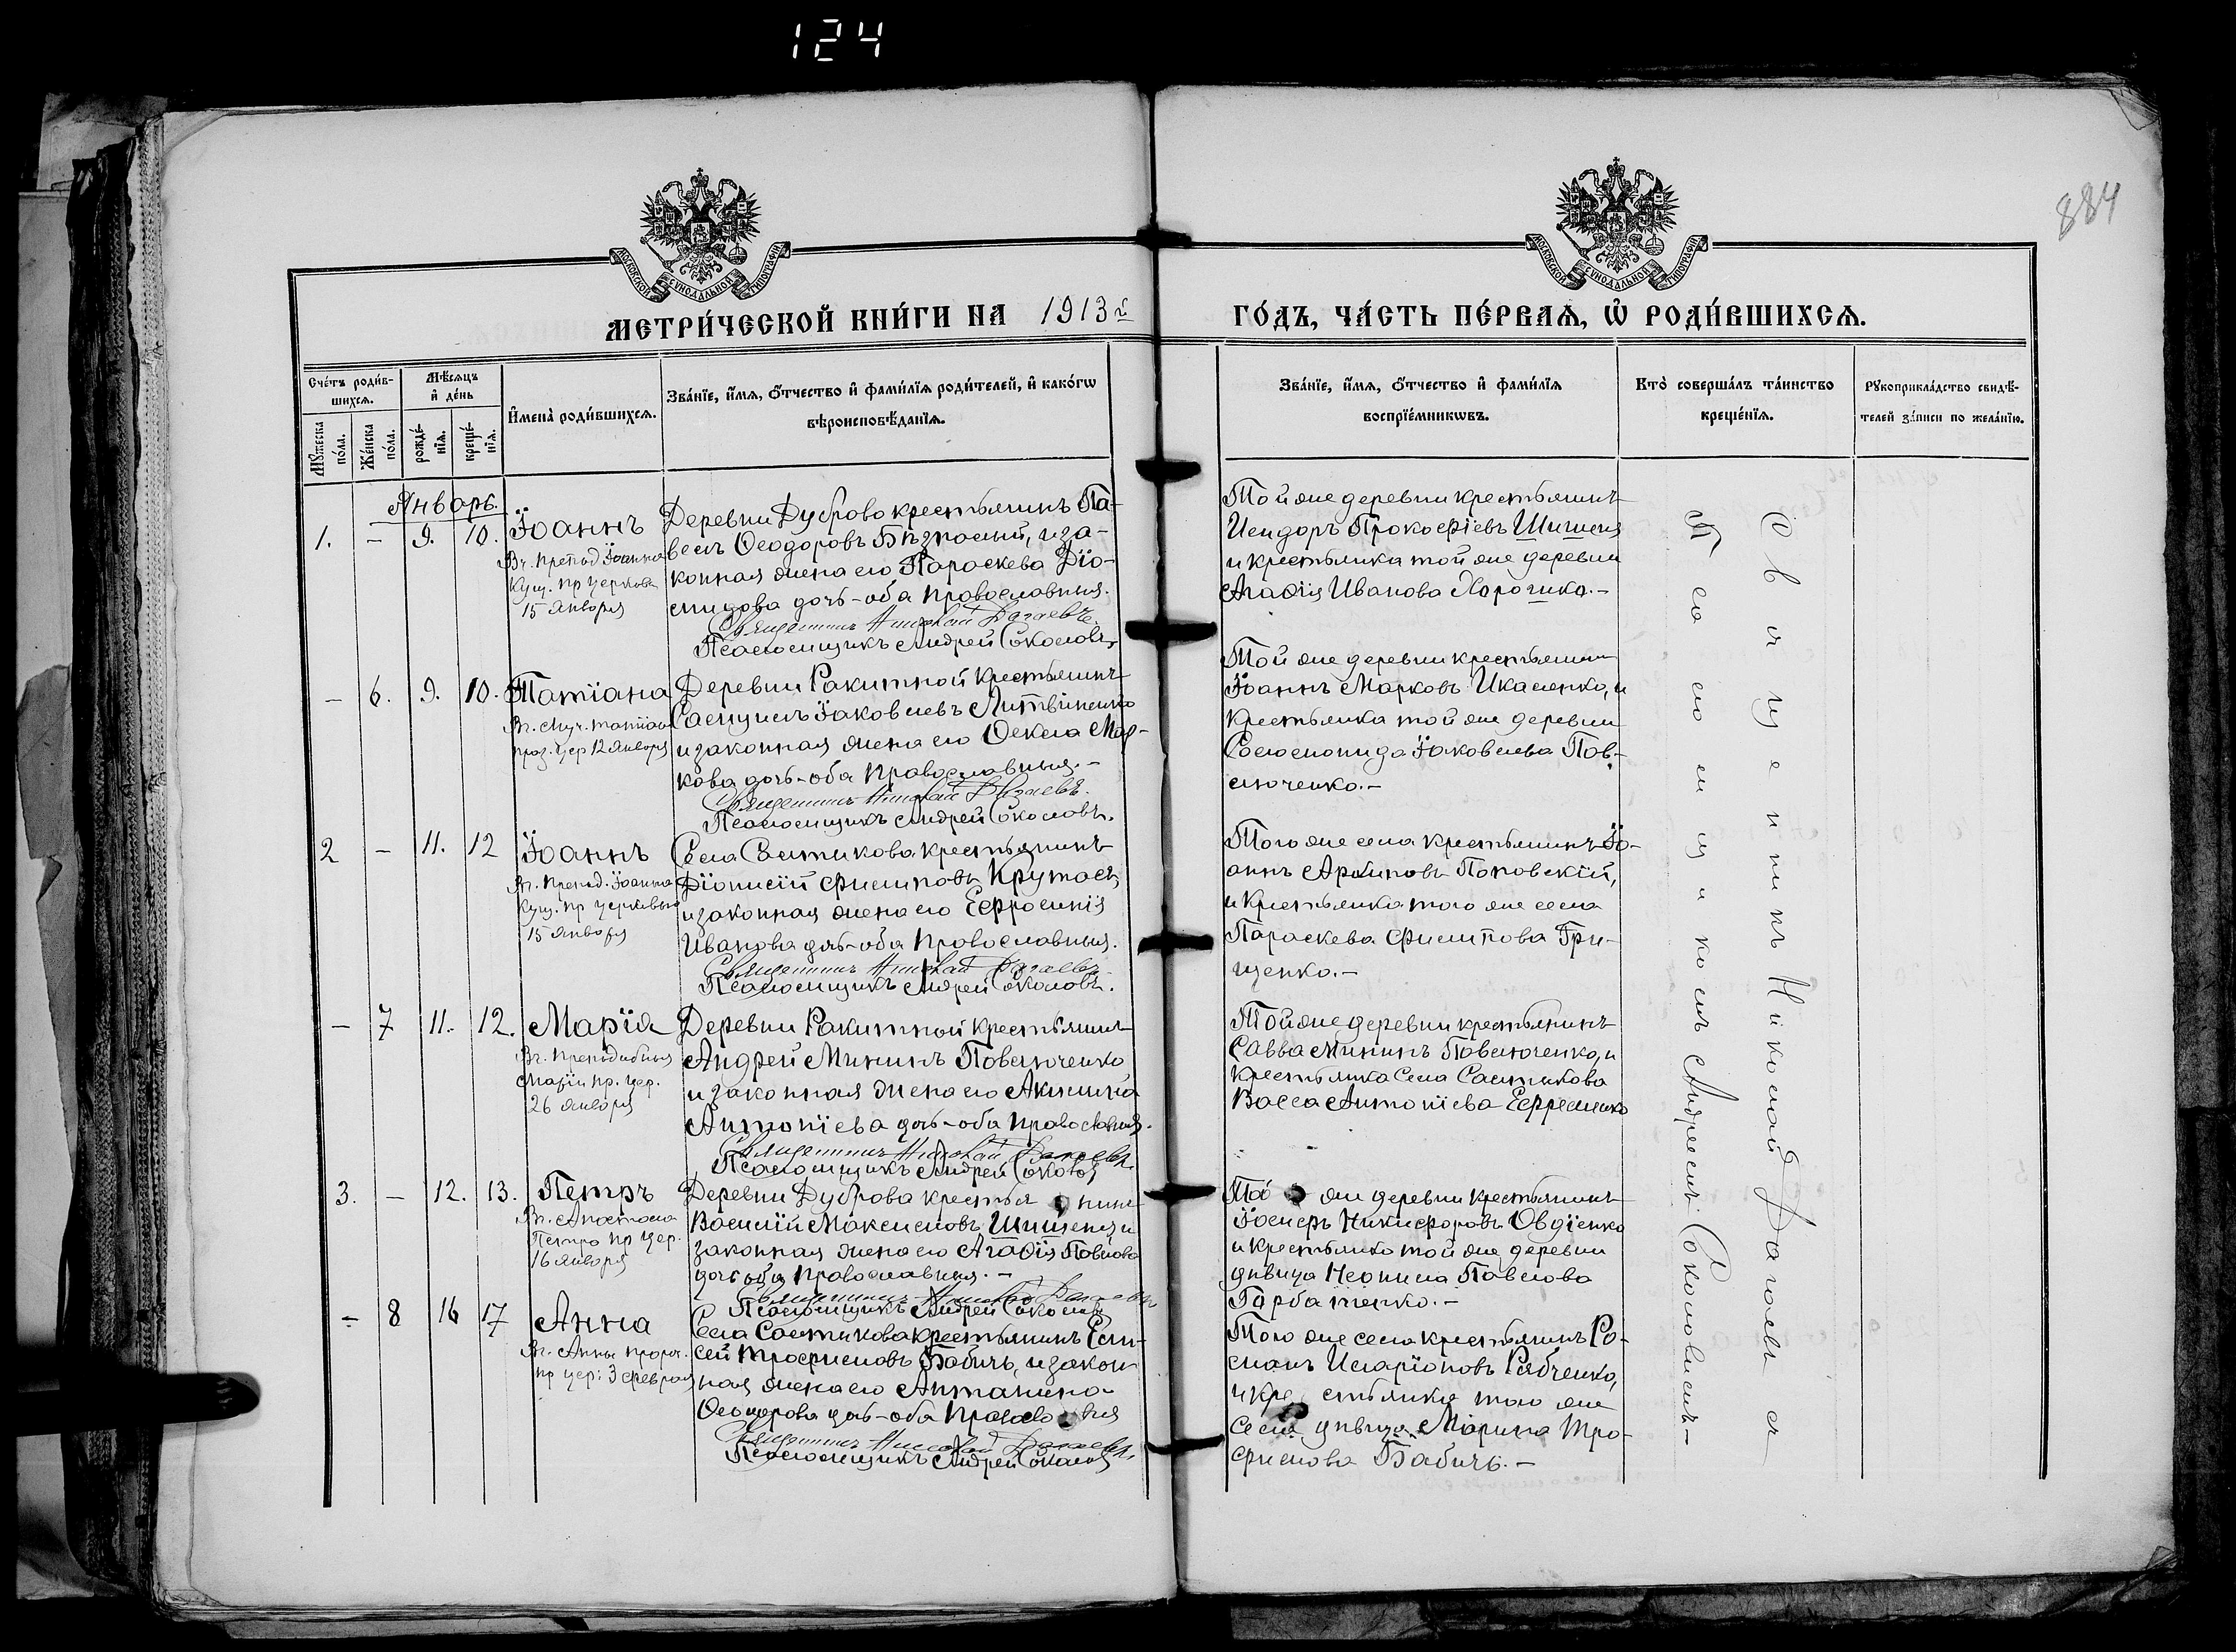 124
884
МОСКОВСКОЙ СѴНОДАЛЬНОЙ ТИПОГРАФІИ
МОСКОВСКОЙ СѴНОДАЛЬНОЙ ТИПОГРАФІИ
МЕТРИ́ЧЕСКОЙ КНИ́ГИ НА 1913 й
ГО́ДЪ, ЧА́СТЬ ПЕ́РВАЯ, Ѡ҆ РОДИ́ВШИХСѦ.
Сче́тъ роди́в-
шихсѧ.
Мꙋ́жеска по́ла.
Же́нска по́ла.
Мѣ́сѧцъ
и҆ де́нь
рожде́-
нїѧ.
креще́-
нїѧ.
И҆мена̀ роди́вшихсѧ.
Зва́нїе, и҆́мѧ, ѻ҆́тчество и҆ фами́лїѧ роди́телей, и҆ како́гѡ
вѣроисповѣ́данїѧ.
Зва́нїе, и҆́мѧ, ѻ҆́тчество и҆ фами́лїѧ
воспрїе́мникѡвъ.
Кто̀ соверша́лъ та́инство
креще́нїѧ.
Рꙋкоприкла́дство свидѣ́-
телей за́писи по жела́нїю.
Январь.
1. — 9. 10. Іоаннъ
Вч. Препод Іоанна
Кущ. пр Церковь
15 Января
Деревни Дуброво крестьянинъ Па-
велъ Ѳеодоровъ Бѣзпалый, и за-
конная жена его Параскева Діо-
мидова дочь - оба православныя.
Священникъ Николай
Псаломщикъ Андрей Соколовъ
Той же деревни крестьянинъ
Исидоръ Прокофіевъ Шишеня
и крестьянка той же деревни
Агаѳія Иванова Хорошко. —
— 6. 9. 10. Татіана
Вч. Муч. Татіан
праз. Цер 12 Января
Деревни Ракитной крестьянинъ
Самуилъ Іаковлевъ Литвиненко
и законная жена его Ѳекла Мар-
кова дочь - оба православныя. —
Священникъ Николай
Псаломщикъ Андрей Соколовъ.
Той же деревни крестьянинъ
Іоаннъ Марковъ Икаленко, и
крестьянка той же деревни
Соломонида Іаковлева Пав-
люченко. —
2 — 11. 12 Іоаннъ
Вч. Препод. Іоанна
Кущ. пр Церковью
15 Января
Села Салтыкова крестьянинъ
Діонисій Филиповъ
и законная жена его Ефросинія
Иванова дочь - оба православныя.
Священникъ Николай
Псаломщикъ Андрей Соколовъ.
Того же села крестьянинъ Іо-
аннъ Архиповъ Поповскій,
и крестьянка того же села
Параскева Филипова Гри-
щенко. —
— 7 11. 12. Марія
Вч. Преподобныя
Маріи пр. Цер.
26 Января
Деревни Ракитной крестьянинъ
Андрей Мининъ Павлюченко,
и законная жена его Акилина
Антоніева дочь - оба православныя.
Священникъ Николай
Псаломщикъ Андрей Соколовъ
Той же деревни крестьянинъ
Савва Мининъ Павлюченко, и
крестьянка Села Салтыкова
Васса Антоніева Ефременко
3. — 12. 13. Петръ
Вч. Апостола
Петра пр Цер.
16 Января
Деревни Дуброва крестьянинъ
Василій Максимовъ Шишеня, и
законная жена его Агаѳія Павлова
дочь оба православныя. —
Священникъ Николай
Псаломщикъ Андрей Соколовъ
Той же деревни крестьянинъ
Іосифъ Никифоровъ Овдіенко
и крестьянка той же деревни
дѣвица Неонила Павлова
Горбаченко. —
— 8 16 17 Анна
Вч. Анны прор.
пр цер: 3 февраля
Села Салтыкова крестьянинъ Ели-
сей Трофимовъ Бабичъ, и закон-
ная жена его Антонина
дочь - оба православныя
Священникъ Николай
Псаломщикъ Андрей Соколовъ
Того же села крестьянинъ Ро-
манъ Иларіоновъ Рябченко,
и крестьянка того же
села дѣвица Марина Тро-
фимова Бабичъ. —
Священникъ Николай
Псаломщикомъ Андреемъ Соколовымъ —